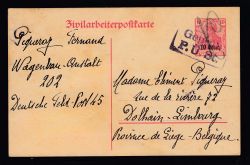 Zivilarbeiterpostkarte
Piqueray Fernand
Wagenbau-Anstalt
202
Deutsche Feld Post 45
Madame Clément Piqueray
Rue de la rivière 77
Dolhain-Limbourg
Province de Liège-Belgique